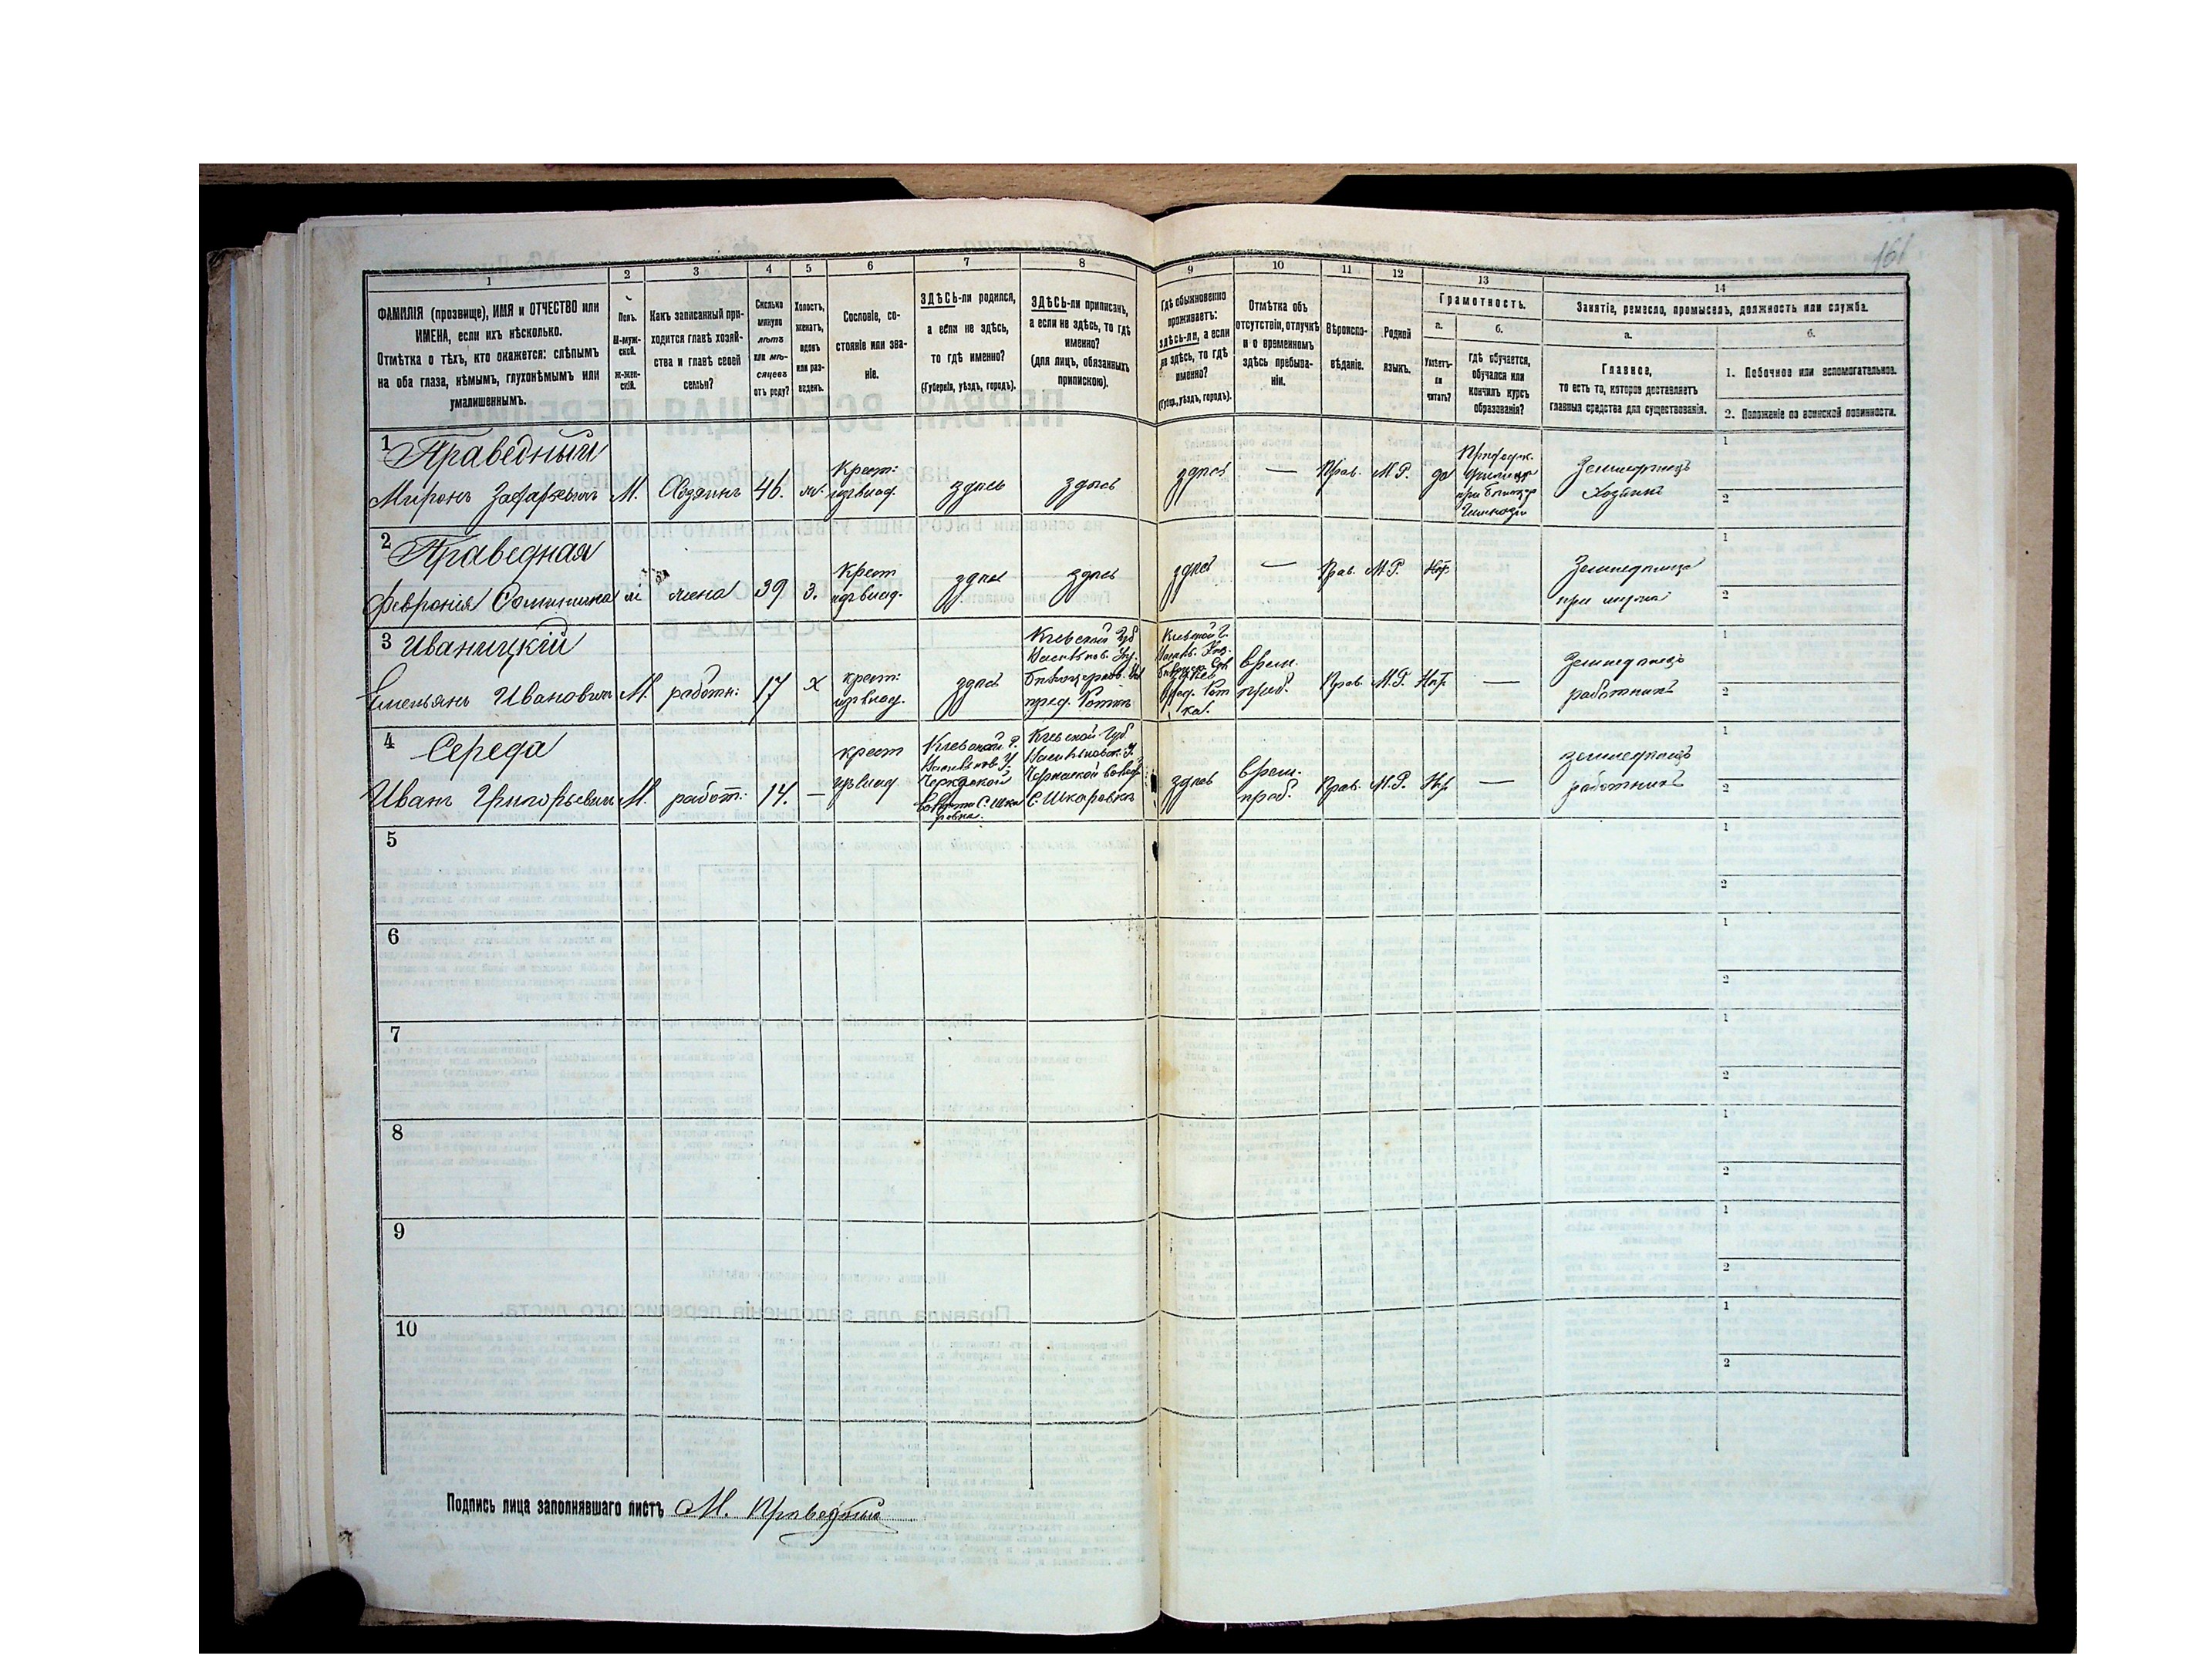 161
1 2 3 4 5 6 7 8 9 10 11 12 13 14
ФАМИЛІЯ (прозвище), ИМЯ и ОТЧЕСТВО или
ИМЕНА, если ихъ нѣсколько.
Отмѣтка о тѣхъ, кто окажется: слѣпымъ
на оба глаза, нѣмымъ, глухонѣмымъ или
умалишеннымъ.
Полъ.
М-муж-
ской.
ж-жен-
скій.
Какъ записанный при-
ходится главѣ хозяй-
ства и главѣ своей
семьи?
Сколько
минуло
лѣтъ
или мѣ-
сяцевъ
отъ роду?
Холостъ,
женатъ,
вдовъ
или раз-
веденъ.
Сословіе, со-
стояніе или зва-
ніе.
ЗДѢСЬ-ли родился,
а если не здѣсь,
то гдѣ именно?
(Губернія, уѣздъ, городъ).
ЗДѢСЬ-ли приписанъ,
а если не здѣсь, то гдѣ
именно?
(для лицъ, обязанныхъ
припискою).
Гдѣ обыкновенно
проживаетъ:
здѣсь-ли, а если
не здѣсь, то гдѣ
именно?
(Губер., уѣздъ, городъ).
Отмѣтка объ
отсутствіи, отлучкѣ
и о временномъ
здѣсь пребыва-
ніи.
Вѣроиспо-
вѣданіе.
Родной
языкъ.
Грамотность.
а.
Умѣетъ-
ли
читать?
б.
гдѣ обучается,
обучался или
кончилъ курсъ
образованія?
Занятіе, ремесло, промыселъ, должность или служба.
а.
Главное,
то есть то, которое доставляетъ
главныя средства для существованія.
б.
1. Побочное или вспомогательное.
2. Положеніе по воинской повинности.
1 Праведный
Миронъ М. Хозяинъ 46. ж. Крест: здѣсь здѣсь здѣсь — Прав. М.Р. да
при
Земледѣлецъ
Хозяинъ
1
2
2 Праведная
Февронія жена 39 З. Крест здѣсь здѣсь здѣсь — Прав. М.Р. Нѣт
при мужѣ
1
2
3 Иваницкій
Емельянъ Ивановичъ М. работн: 17 х крест: здѣсь
Кіевской Губ
Васильков.
пред.
Кіевской Г.
врем.
Прав. М.Р. Нѣт —
Земледѣлецъ
работникъ
1
2
4 Середа
Иванъ Григорьевичъ М. работ: 14. — крест
Кіевской Г.
Васильков. У.
Кіевской Губ
Васильковск. У.
С. Шкаровка
здѣсь
врем.
Прав. М.Р. —
земледѣлецъ
работникъ
1
2
5
1
2
6
1
2
7
1
2
8
1
2
9
1
2
10
1
2
Подпись лица заполнявшаго листъ М. Праведный